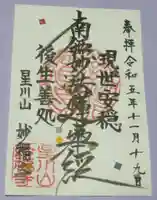 奉拝 令和五年十一月十九日
現世安穏
南無妙法蓮華経
後生善処
星川山 妙